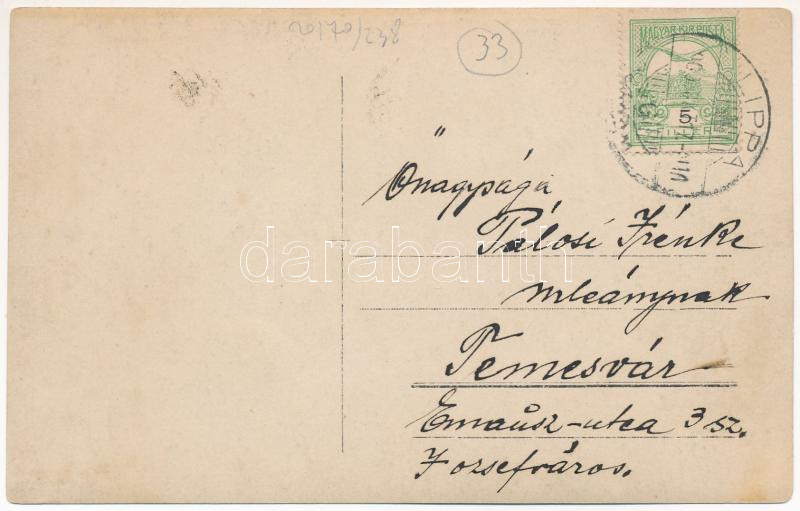 20170/238
33
MAGYAR KIR. POSTA
5
LIPPA
Önagysága
Pálosi Irénke
urleánynak
Temesvár
Emausz-utca 3 sz.
Jozsefváros.
darabanth